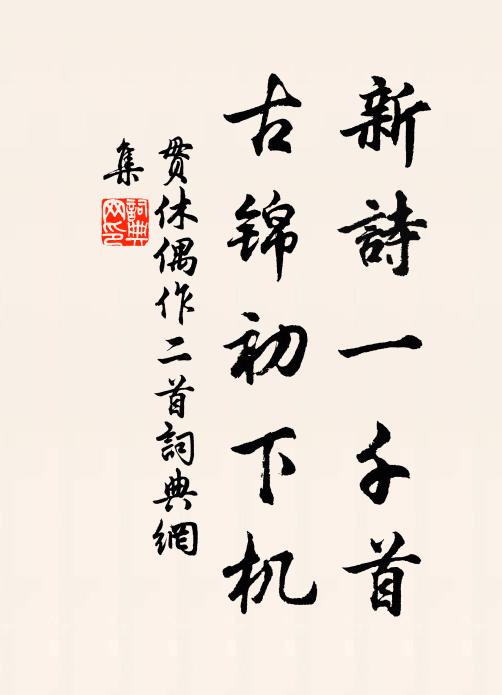 新詩一千首
古锦初下机
贯休偶作二首詞典網
集
詞典
网印